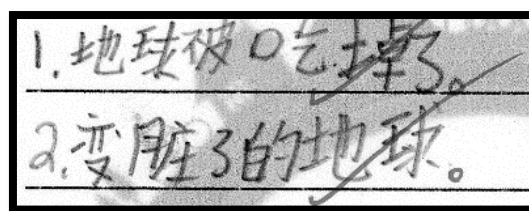 1.地球被吃掉了。
2.变脏了的地球。